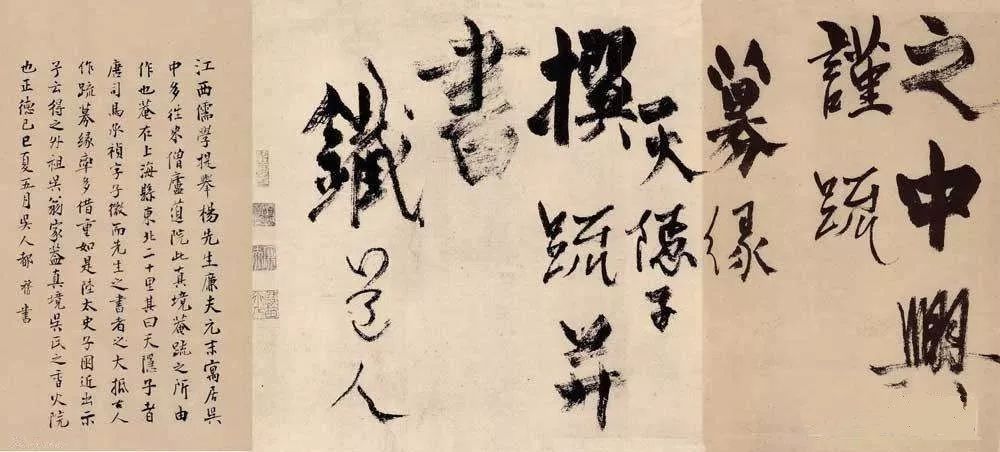 之中興
謹疏
募緣
天隱子
撰疏并
書
鐵心道人
江西儒學提舉楊先生廉夫元末寓居吳
中多往來僧廬道院此真境菴疏之所由
作也菴在上海縣東北二十里其曰天隱子者
唐司馬承禎字子微而先生之書者之大抵古人
作疏募緣率多借重如是陸太史子囦近出示
予云得之外祖吳翁家葢真境吳氏之香火院
也正德己巳夏五月吳人都穆書